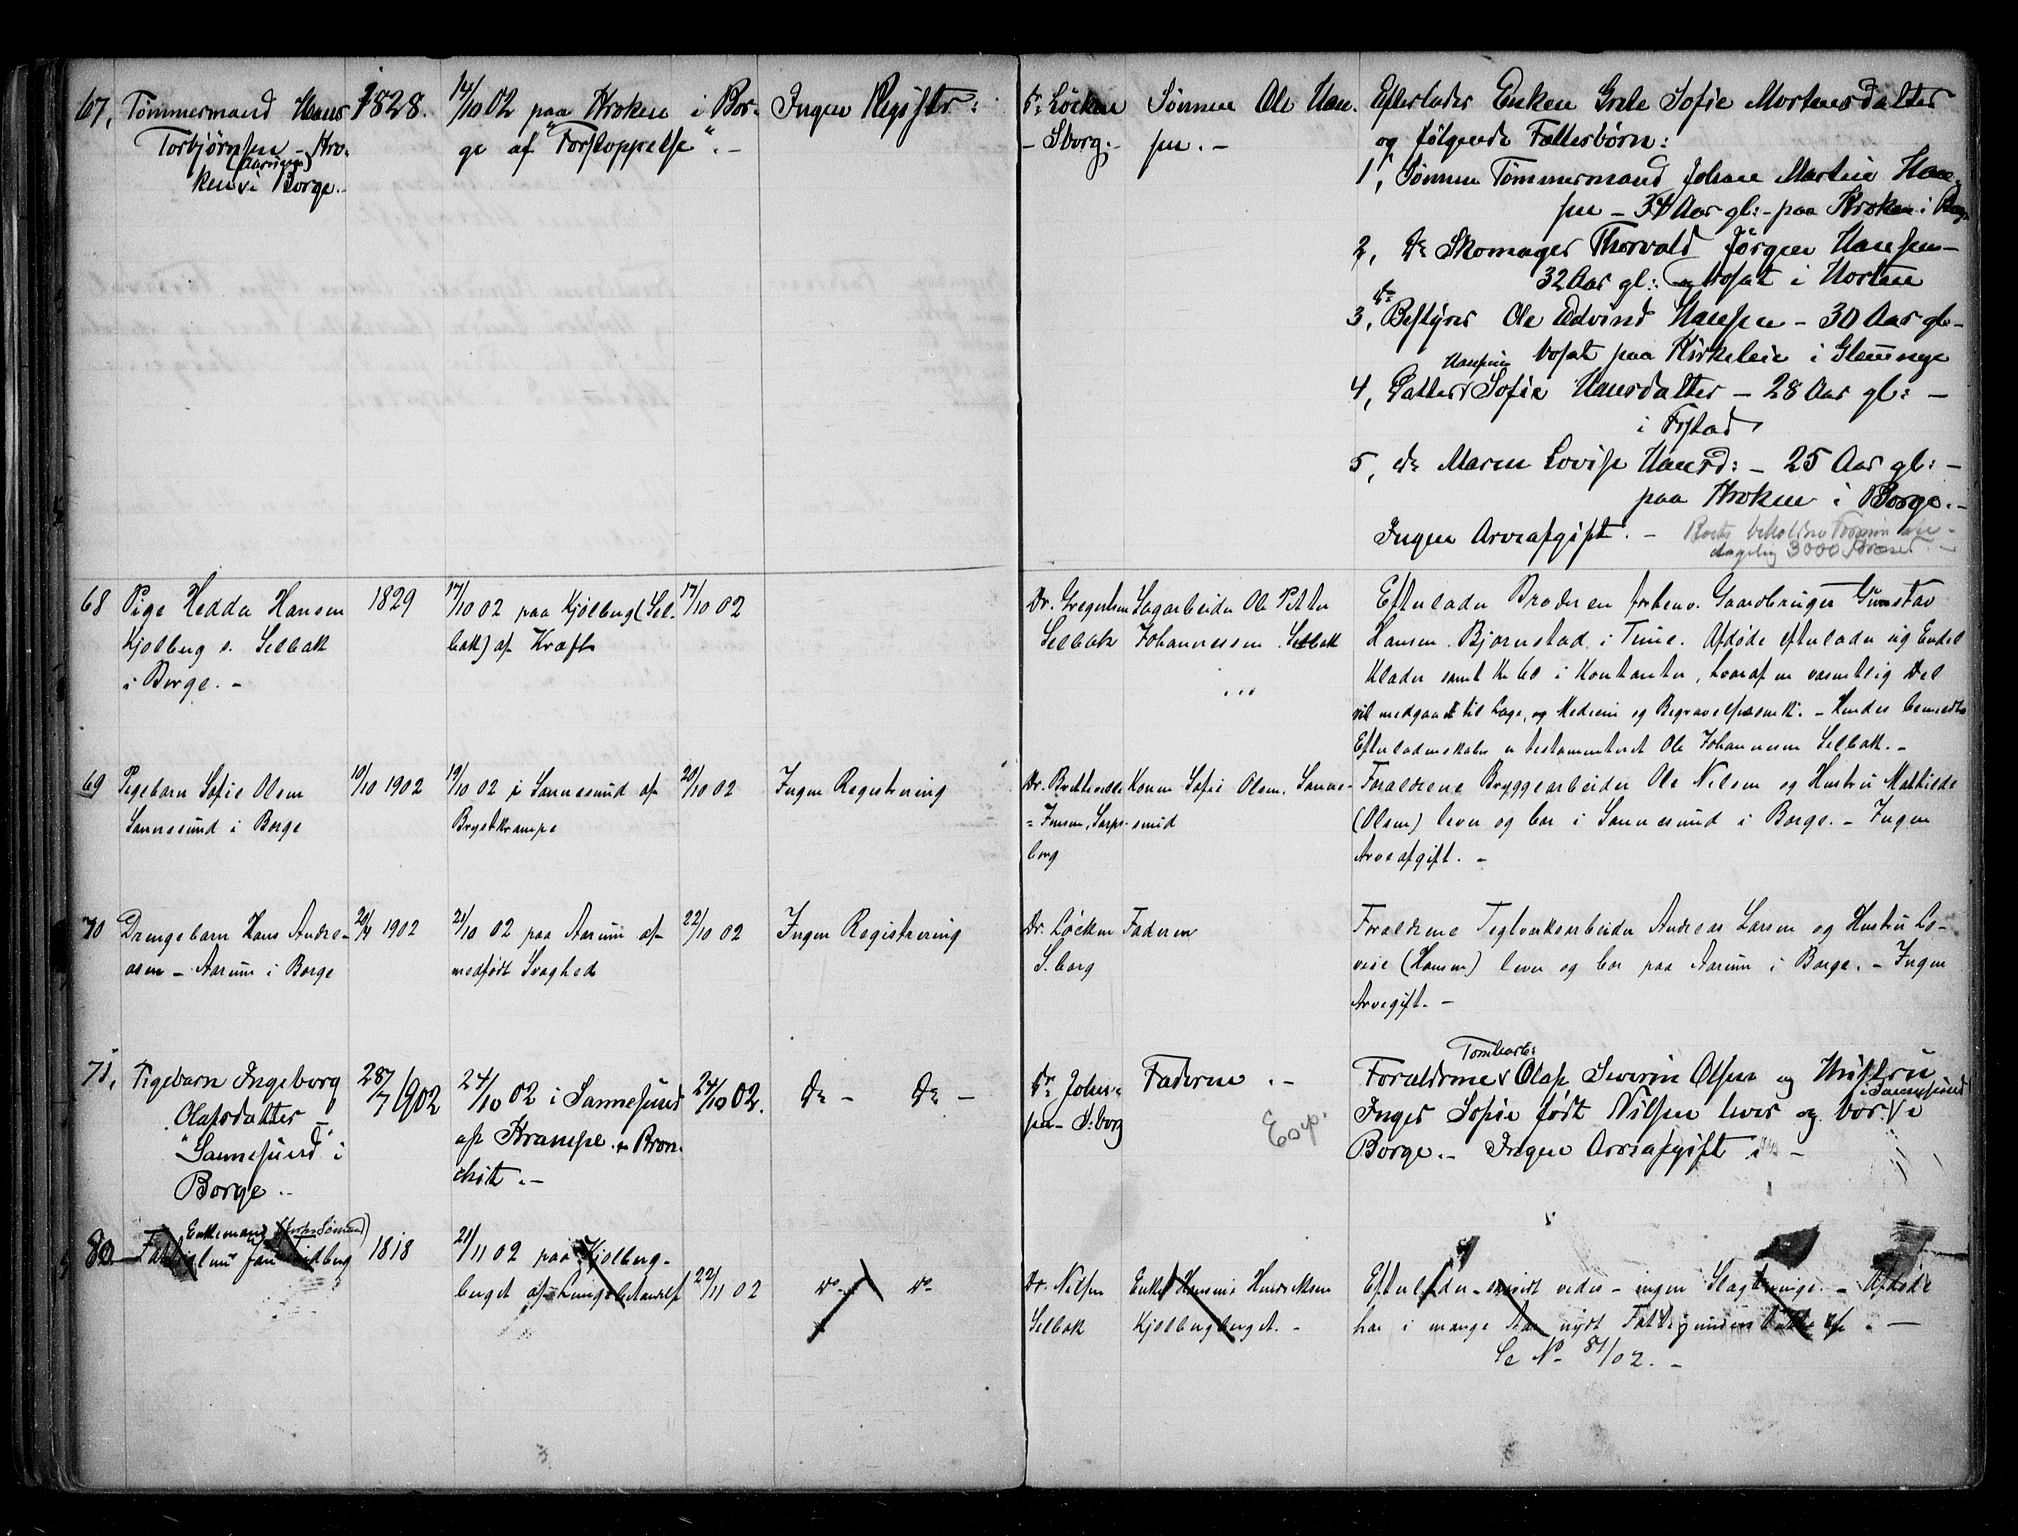 67, Tømmermand Hans
Torbjørnsen - Kro-
(Aarumgen)
ken i Borge.
1828.
14/10 02 paa Kroken i Bor-
ge af "Forstoppelse". -
Ingen Registr:
Dr. Löcken
- Sborg. -
Sønnen Ole Han-
sen. -
Efterlader Enken Grete Sofie Mortensdatter
og følgende Fællesbørn:
1, Sønnen Tømmermand Johan Martin Han-
sen - 34 Aar gl: - paa Kroken i Borge
2, Do Skomager Thorvald Jørgen Hansen -
32 Aar gl: og bosat i Horten
3, do Bestyrer Ole Edvind Hansen - 30 Aar gl -
bosat paa Kirkeleie i Glemminge
4, Datter Hansine Sofie Hansdatter - 28 Aar gl: -
i Fstad
5, do Maren Lovise Hansd: - 25 Aar gl: -
paa Kroken i Borge. -
Ingen Arveafgift. - Boets beholdne Formue
3000 Kroner. -
68 Pige Hedda Hansen
Kjølberg v. Selbak
i Borge. -
1829
17/10 02 paa Kjølberg (Sel-
bak) af Kræft
17/10 02
Dr. Gregersen
Selbak
Sagarbeider Ole Petter
Johannessen Selbak
Efterlader Broderen forhenv. Gaardbruger Gunstav
Hansen Bjørnstad i Tune. Afdøde efterlader sig Endel
Klæder samt Kr 60 i Kontanter, hvoraf en væsentlig Del
vil medgaa til Læge, og Medicin og Begravelsesomk. - Hendes bemeldte
Efterladenskaber er testamenteret Ole Johannesen Selbak. -
69 Pigebarn Sofie Olsen
Sannesund i Borge
10/10 1902
19/10 02 i Sannesund af
Brystkrampe
20/10 02
Ingen Registrering
Dr.
Jensen, Sarps-
borg
Konen Sofie Olsen, Sanne-
sund
Forældrene Bryggearbeider Ole Nilsen og Hustru Mathilde
(Olsen) lever og bor i Sannesund i Borge. - Ingen
Arveafgift. -
70 Drengebarn Hans Andre-
asen - Aarum i Borge
20/9 1902
21/10 02 paa Aarum af
medfødt Svaghed
22/10 02
Ingen Registrering
Dr. Löcken
S.borg
Faderen
Forældrene Teglverksarbeider Andreas Larsen og Hustru Lo-
vise (Hansen) lever og bor paa Aarum i Borge. - Ingen
Arvegift. -
71, Pigebarn Ingeborg
Olafsdatter -
"Sannesund" i
Borge. -
28/7 1902
24/10 02 i Sannesund
af Krampe + Bron-
chit. -
24/10 02.
Do - Do -
Dr John-
sen - S:borg
Faderen . -
Exp.
Tomtearb:
Forældrene Olaf Severin Olsen og Hustru
i Sannesund
Inger Sofie født Nilsen lever og bor i
Borge. - Ingen Arveafgift -
80 Enkemand (forhv Sømand)
Fattiglem Jan
1818
21/11 02 paa Kjølberg-
berget af Lungebetændelse
22/11 02
do do
Dr. Nilsen
Selbak
Enke Hansine Hendriksen
Kjølbergberget. -
Efterlader - saavidt vides - ingen Slægtninge. - Afdøde
har i mange Aar nydt Fattigunderstøttelse. -
Se No 81/02. -